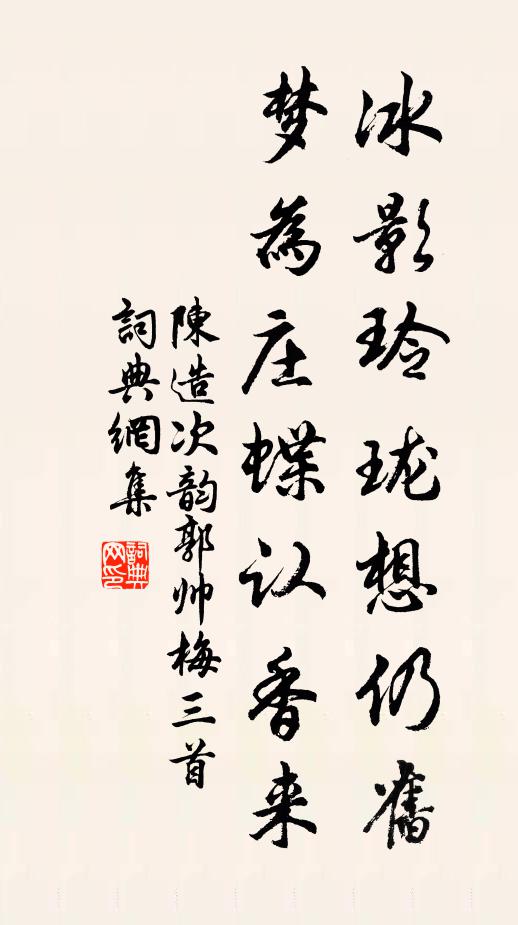 冰影玲珑想仍舊
梦為庄蝶认香来
陳造次韵郭帅梅三首
詞典網集
詞典网印